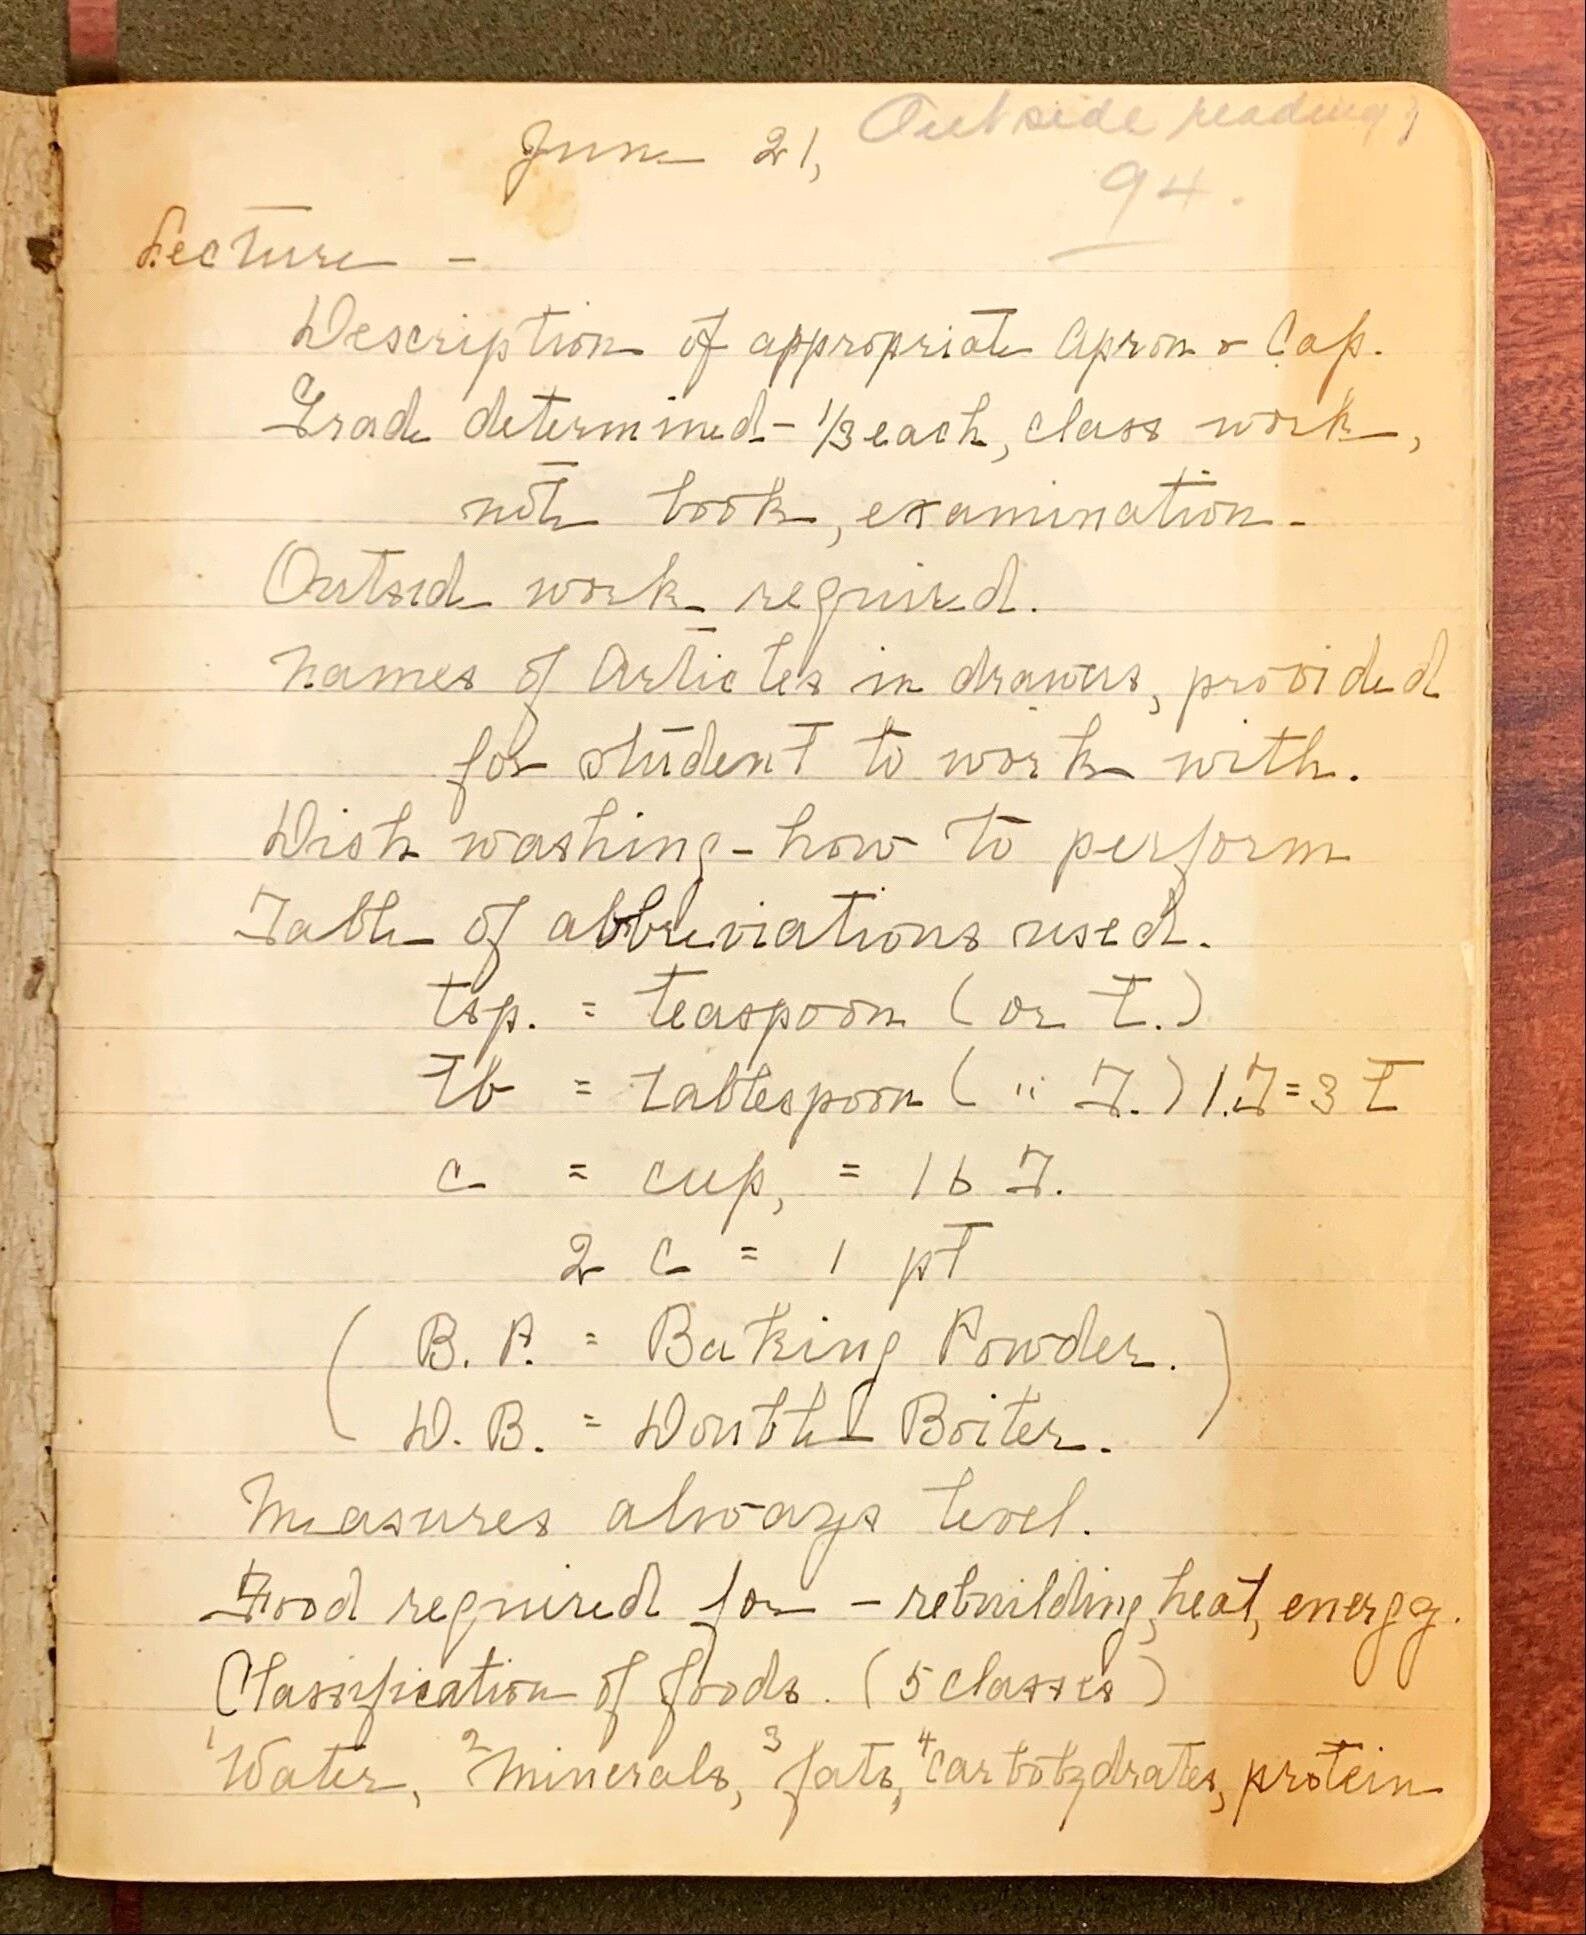 Outside reading
June 21,
94.
Lecture -
Description of appropriate Apron & Cap.
Grade determined - 1/3 each, class work,
note book, examination -
Outside work required.
Names of Articles in drawers, provided
for student to work with.
Dish washing - how to perform
Table of abbreviations used.
tsp. = teaspoon (or t.)
tb = tablespoon ( " T.) 1.T = 3 t
c = cup, = 16 T.
2 c = 1 pt
( B. P. = Baking Powder. )
( D. B. = Double Boiler. )
Measures always level.
Food required for - rebuilding, heat, energy.
Classification of foods. (5 classes)
1 Water, 2 Minerals, 3 fats, 4 carbohydrates, protein